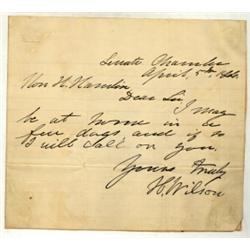 Senate Chamber
April, 5th, 1866
Hon H. Hamlin
Dear Sir I may
be at home in a
few days and if so
I will call on you.
Yours truly
H. Wilson